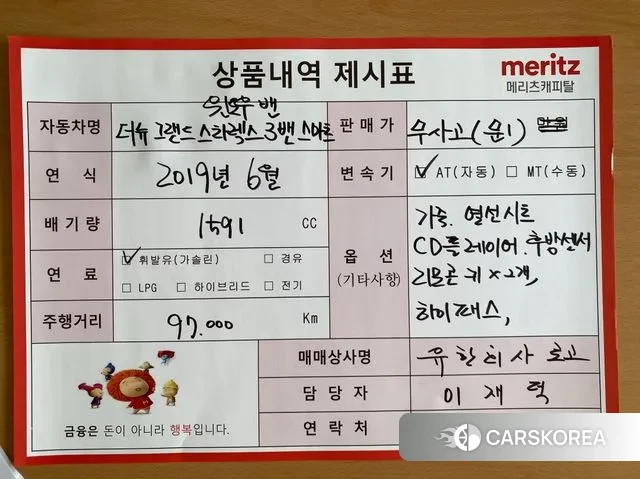 상품내역 제시표
meritz
메리츠캐피탈
자동차명
윈도우 밴
더뉴 그랜드 스타렉스 3밴 스마트
판매가
무사고(문1)
만원
연 식
2019년 6월
변속기
☑ AT(자동) ☐ MT(수동)
배기량
1591 CC
옵션
(기타사항)
가솔. 열선시트
CD플레이어. 후방센서
리모콘 키 x 2개,
하이패스,
연 료
☑ 휘발유(가솔린) ☐ 경유
☐ LPG ☐ 하이브리드 ☐ 전기
주행거리
97.000 Km
매매상사명
담당자
이 재 혁
연락처
금융은 돈이 아니라 행복입니다.
CARSKOREA